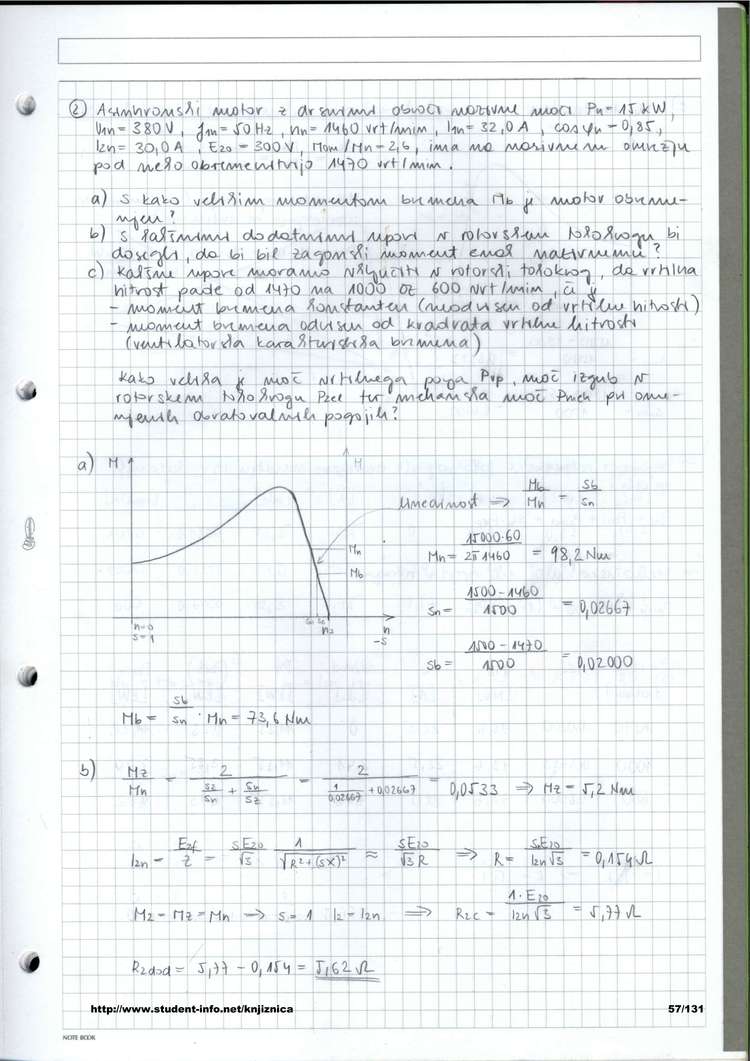 ② Asinhronski motor z drsnimi obroči nazivne moči Pn = 15 kW,
U1n = 380 V, f1n = 50 Hz, nn = 1460 vrt/min, I1n = 32,0 A, cosφn = 0,85,
I2n = 30,0 A, E20 = 300 V, Mom/Mn = 2,6, ima na nazivnem omrežju
pod neko obremenitvijo 1470 vrt/min.
a) S kako velikim momentom bremena Mb je motor obreme-
njen?
b) S kakšnimi dodatnimi upori v rotorskem tokokrogu bi
dosegli, da bi bil zagonski moment enak nazivnemu?
c) Kakšne upore moramo vključiti v rotorski tokokrog, da vrtilna
hitrost pade od 1470 na 1000 oz 600 vrt/min, če je
- moment bremena konstanten (neodvisen od vrtilne hitrosti)
- moment bremena odvisen od kvadrata vrtilne hitrosti
(ventilatorska karakteristika bremena)
Kako velika je moč vrtilnega polja Pvp, moč izgub v
rotorskem tokokrogu P2el ter mehanska moč Pmeh pri ome-
njenih obratovalnih pogojih?
a) M M
linearnost ⇒ Mb/Mn = sb/sn
Mn
Mb
Mn = 15000·60 / 2π 1460 = 98,2 Nm
sn = 1500 - 1460 / 1500 = 0,02667
n=0 n n
s=1 -s
sb = 1500 - 1470 / 1500 = 0,02000
Mb = sb/sn · Mn = 73,6 Nm
b) Mz/Mn = 2 / (sz/sn + sn/sz) = 2 / (1/0,02667 + 0,02667) = 0,0533 ⇒ Mz = 5,2 Nm
I2n = E2f/Z = sE20/√3 · 1/√(R²+(sX)²) ≈ sE20/√3 R ⇒ R = snE20 / I2n√3 = 0,154 Ω
M2 = Mz = Mn → s = 1 I2 = I2n ⇒ R2c = 1·E20 / I2n√3 = 5,77 Ω
R2dod = 5,77 - 0,154 = 5,62 Ω
http://www.student-info.net/knjiznica 57/131
NOTE BOOK